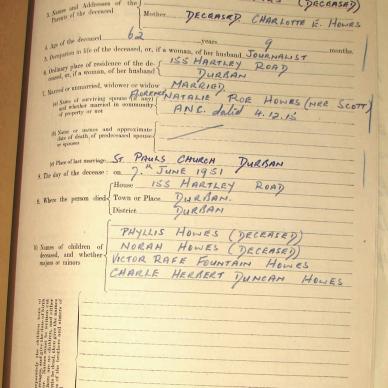 3. Names and Addresses of the
Parents of the deceased
(DECEASED)
Mother DECEASED CHARLOTTE E. HOWES
4. Age of the deceased 62 years 9 months.
5. Occupation in life of the deceased, or, if a woman, of her husband JOURNALIST
6. Ordinary place of residence of the de-
ceased, or, if a woman, of her husband
155 HARTLEY ROAD
DURBAN
7. Married or unmarried, widower or widow MARRIED
(a) Name of surviving spouse (if any)
and whether married in community
of property or not
FLORENCE NATALIE ROE HOWES (NEE SCOTT)
ANC. dated 4.12.15
(b) Name or names and approximate
date of death of predeceased spouse
or spouses
(c) Place of last marriage ST PAULS CHURCH DURBAN
8. The day of the decease: on 7th JUNE 1951
9. Where the person died
House 155 HARTLEY ROAD
Town or Place DURBAN.
District DURBAN
10. Names of children of
deceased, and whether
majors or minors
PHYLLIS HOWES (DECEASED)
NORAH HOWES (DECEASED)
VICTOR RAFE FOUNTAIN HOWES
CHARLE HERBERT DUNCAN HOWES